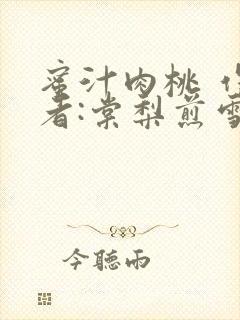 蜜汁肉桃
者:棠梨煎雪
今聽雨